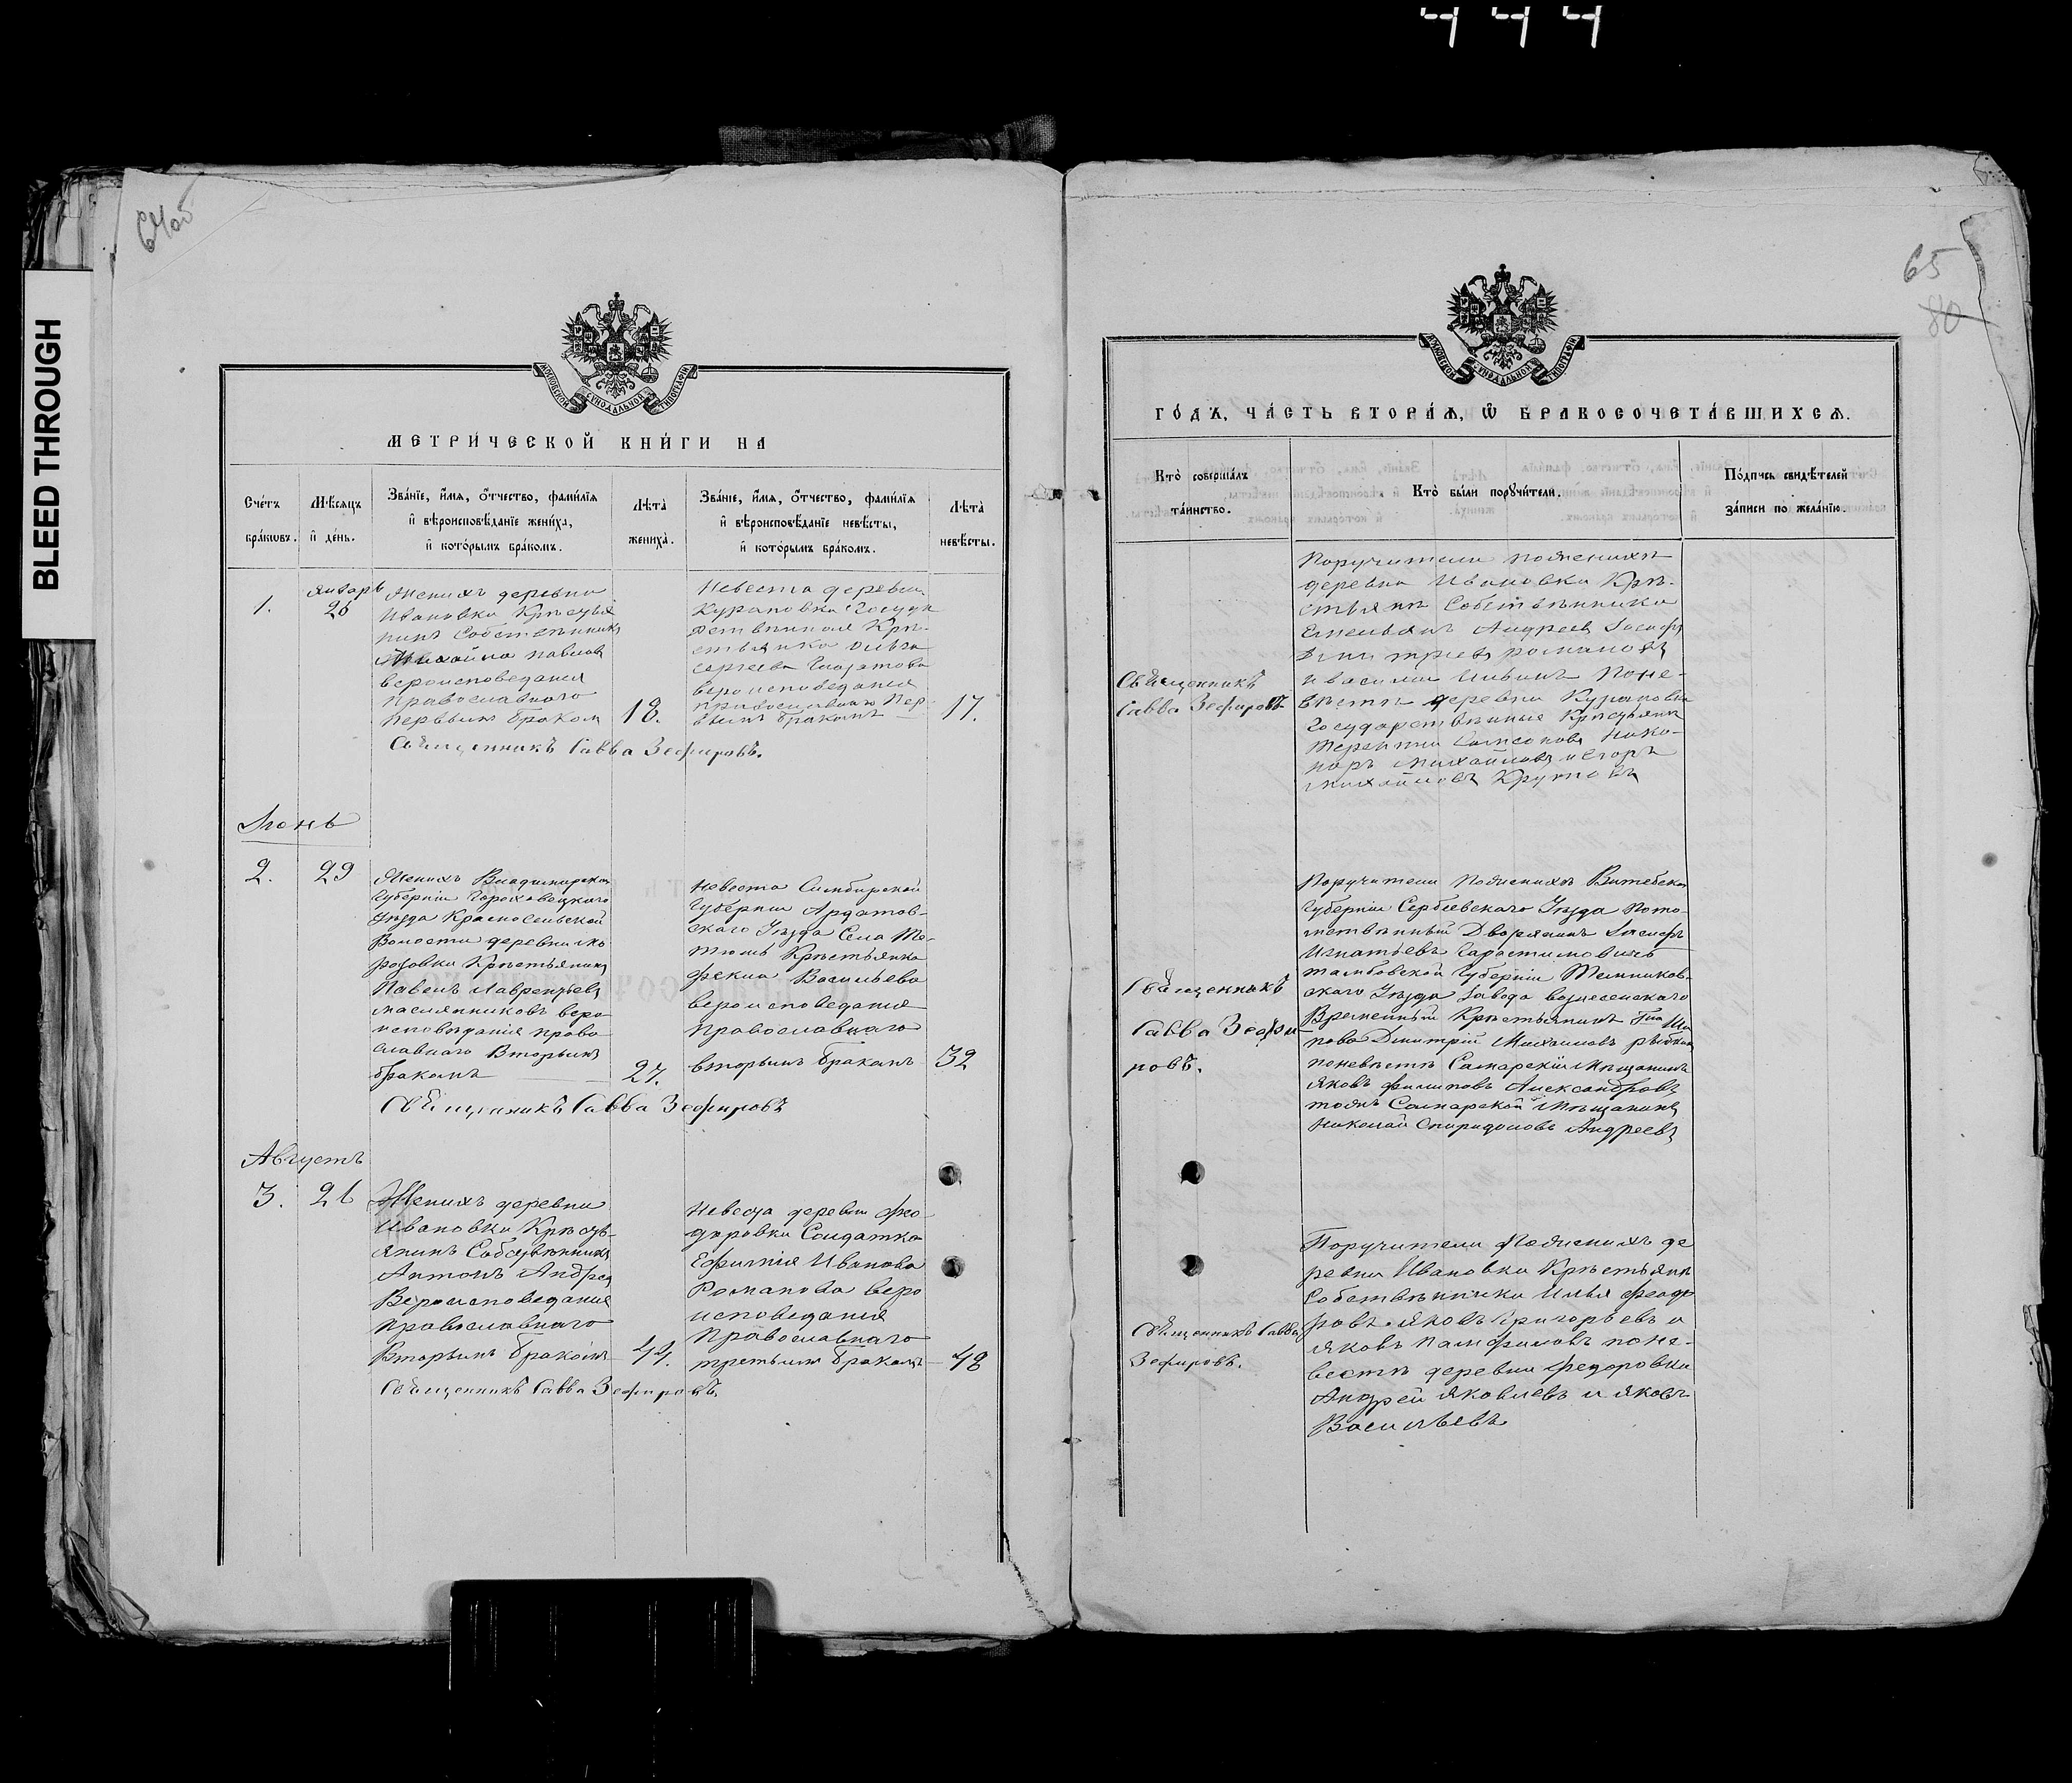 444
BLEED THROUGH
64об
МОСКОВСКОЙ СѴНОДАЛЬНОЙ ТИПОГРАФІИ
МЕТРИ́ЧЕСКОЙ КНИ́ГИ НА
Сче́тъ бра́кωвъ.
Мѣ́сяцъ и҆ де́нь.
Зва́нїе, и҆́мѧ, ѻ҆́тчество, фами́лїѧ
и҆ вѣроисповѣ́данїе жениха̀,
и҆ кото́рымъ бра́комъ.
Лѣта̀ жениха̀.
Зва́нїе, и҆́мѧ, ѻ҆́тчество, фами́лїѧ
и҆ вѣроисповѣ́данїе невѣ́сты,
и҆ кото́рымъ бра́комъ.
Лѣта̀ невѣ́сты.
1.
Январь
26
Женихъ деревни
Ивановки Крестья
нинъ Собственникъ
Михайла Павлов
вероисповедания
Православнаго
Первымъ браком
18.
Невеста деревни
Курановки Госуда
рственная Кре
стьянка Ольга
Сергеева
вероисповедания
православнаго Пер
вымъ бракомъ
17.
Священникъ Савва Зефировъ.
Іюнь
2.
29
Женихъ Владимирской
Губерніи Гороховецкаго
Уезда Красносельской
Волости деревни Мо
розовки Крестьянинъ
Павелъ Лаврентьевъ
Масленниковъ веро
исповѣданія право
славнаго Вторымъ
бракомъ
27.
Невеста Симбирской
Губерніи Ардатов-
скаго Уѣзда Села
Крѣстьянка
Фекла Васильева
вероисповедания
Православнаго
вторымъ бракамъ
32
Священникъ Савва Зефировъ
Августъ
3.
26
Женихъ деревни
Ивановки Крѣстъ-
янинъ Собствѣнникъ
Антонъ Андреев
Вероисповедания
Православнаго
Вторымъ бракомъ
44.
Невеста деревни Фео
доровки Солдатка
Ефимія Иванова
Романова веро
исповедания
Православнаго
третьимъ бракомъ
48
Священникъ Савва Зефировъ.
65
80
МОСКОВСКОЙ СѴНОДАЛЬНОЙ ТИПОГРАФІИ
ГО́ДЪ, ЧА́СТЬ ВТОРА́Ѧ, Ѽ БРАКОСОЧЕТА́ВШИХСѦ.
Кто̀ соверша́лъ
та́инство.
Кто̀ бы́ли порꙋчи́тели.
По́дпись свидѣ́телей
за́писи по жела́нїю.
Священникъ
Савва Зефировъ
Поручители пожених
деревни Ивановки Крѣ-
стьянѣ Собствѣнники
Емельянъ Андреев Іосифъ
Дмитриевъ Романовъ
и Василий Ильинъ Поне-
вѣсте деревни Курановки
Государственные Крестьяне
Терентий Самсоновъ Ника-
норъ Михайловъ и Егоръ
Михайловъ Крутовъ
Священникъ
Савва Зефи
ровъ.
Поручители Поженихѣ Витебской
Губерніи Уѣзда Пото-
мствѣнный Дворянинъ Іосифъ
Игнатьевъ
Тамбовской Губерніи Темников-
скаго Уѣзда Завода вознесенскаго
Временный Крѣстьянинъ
Дмитрій Михаиловъ
поневѣстѣ Самарскій Мѣщанинъ
Яковъ Филиповъ Александровъ
тожъ Самарской Мѣщанинъ
Николай Спиридоновъ Андреевъ
Священникъ Савва
Зефировъ.
Поручители Поженихѣ де
ревни Ивановки Крѣстьянѣ
Собствѣнники Илья Феодо
ровъ. Яковъ Григорьевъ и
Яковъ Памфиловъ поне-
вестѣ деревни Федоровки
Андрей Яковлевъ и Яковъ
Васильевъ